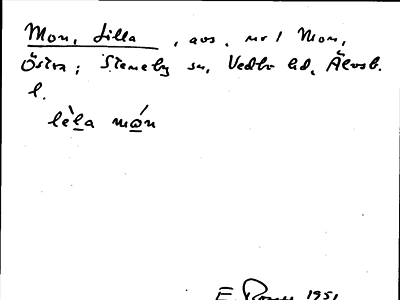 Mon, Lilla, avs. nr 1 Mon,
Östra; Steneby sn, Vedbo hd, Älvsb.
l.
lèla món
E. 1951